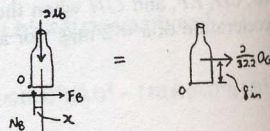 2lb
=
O
F_B
N_B
x
2/32.2 a_G
8 in